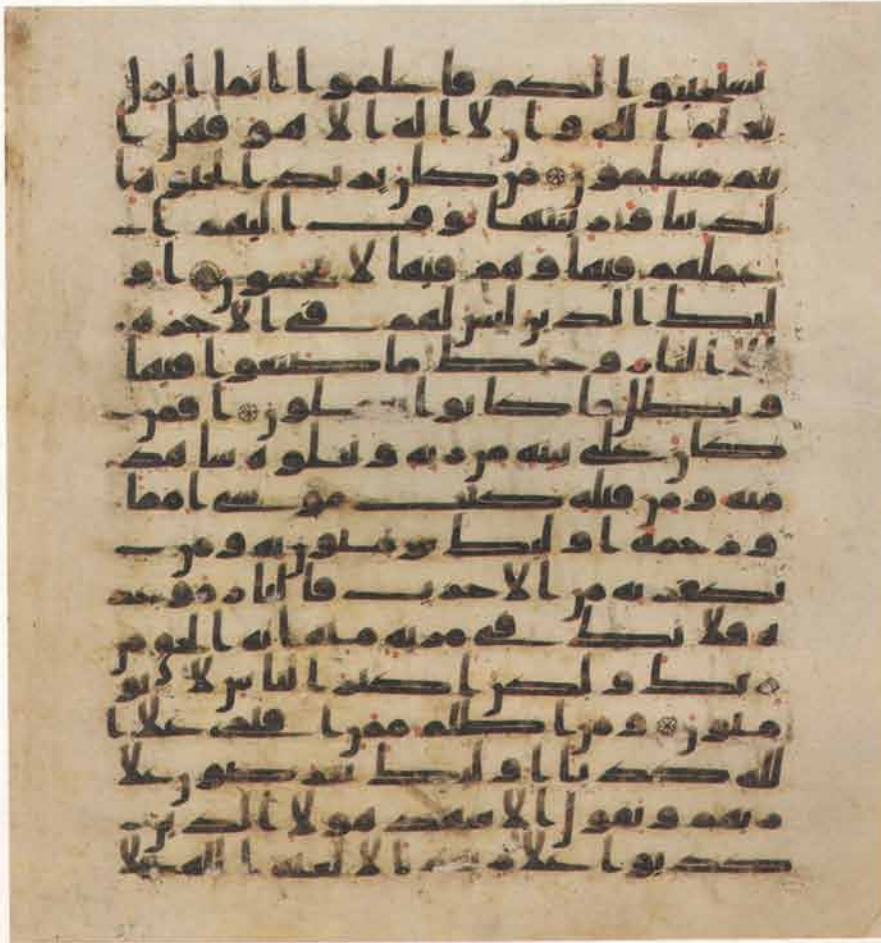 يستجيبوا لكم فاعلموا انما انزل
بعلم الله وان لا اله الا هو فهل ا
نتم مسلمون من كان يريد الحيوه ا
لدنيا وزينتها نوف اليهم ا
عملهم فيها وهم فيها لا يبخسون او
ليك الذين ليس لهم في الاخره
الا النار وحبط ما صنعوا فيها
وبطل ما كانوا يعملون افمن
كان على بينه من ربه ويتلوه شاهد
منه ومن قبله كتب موسى امما
ورحمه اوليك يومنون به ومن
يكفر به من الاحزب فالنار موعد
ه فلا تك في مريه منه انه الحق من
ربك ولكن اكثر الناس لا يو
منون ومن اظلم ممن افترى علا ا
لله كذبا اوليك يعرضون علا
ربهم ويقول الاشهد هولا الذين
كذبوا علا ربهم الا لعنه الله علا